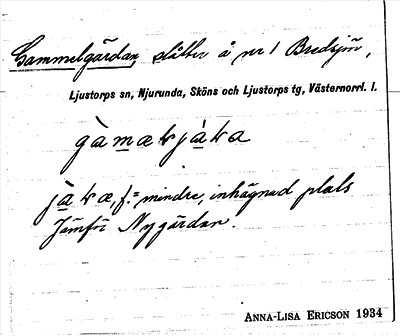 Gammelgärdan, slåtter å nr 1 Bredsjön,
Ljustorps sn, Njurunda, Sköns och Ljustorps tg, Västernorrl. l.
gàmækjàka
jàkæ, f. = mindre, inhägnad plats
Jämför Nygärdan.
ANNA-LISA ERICSON 1934